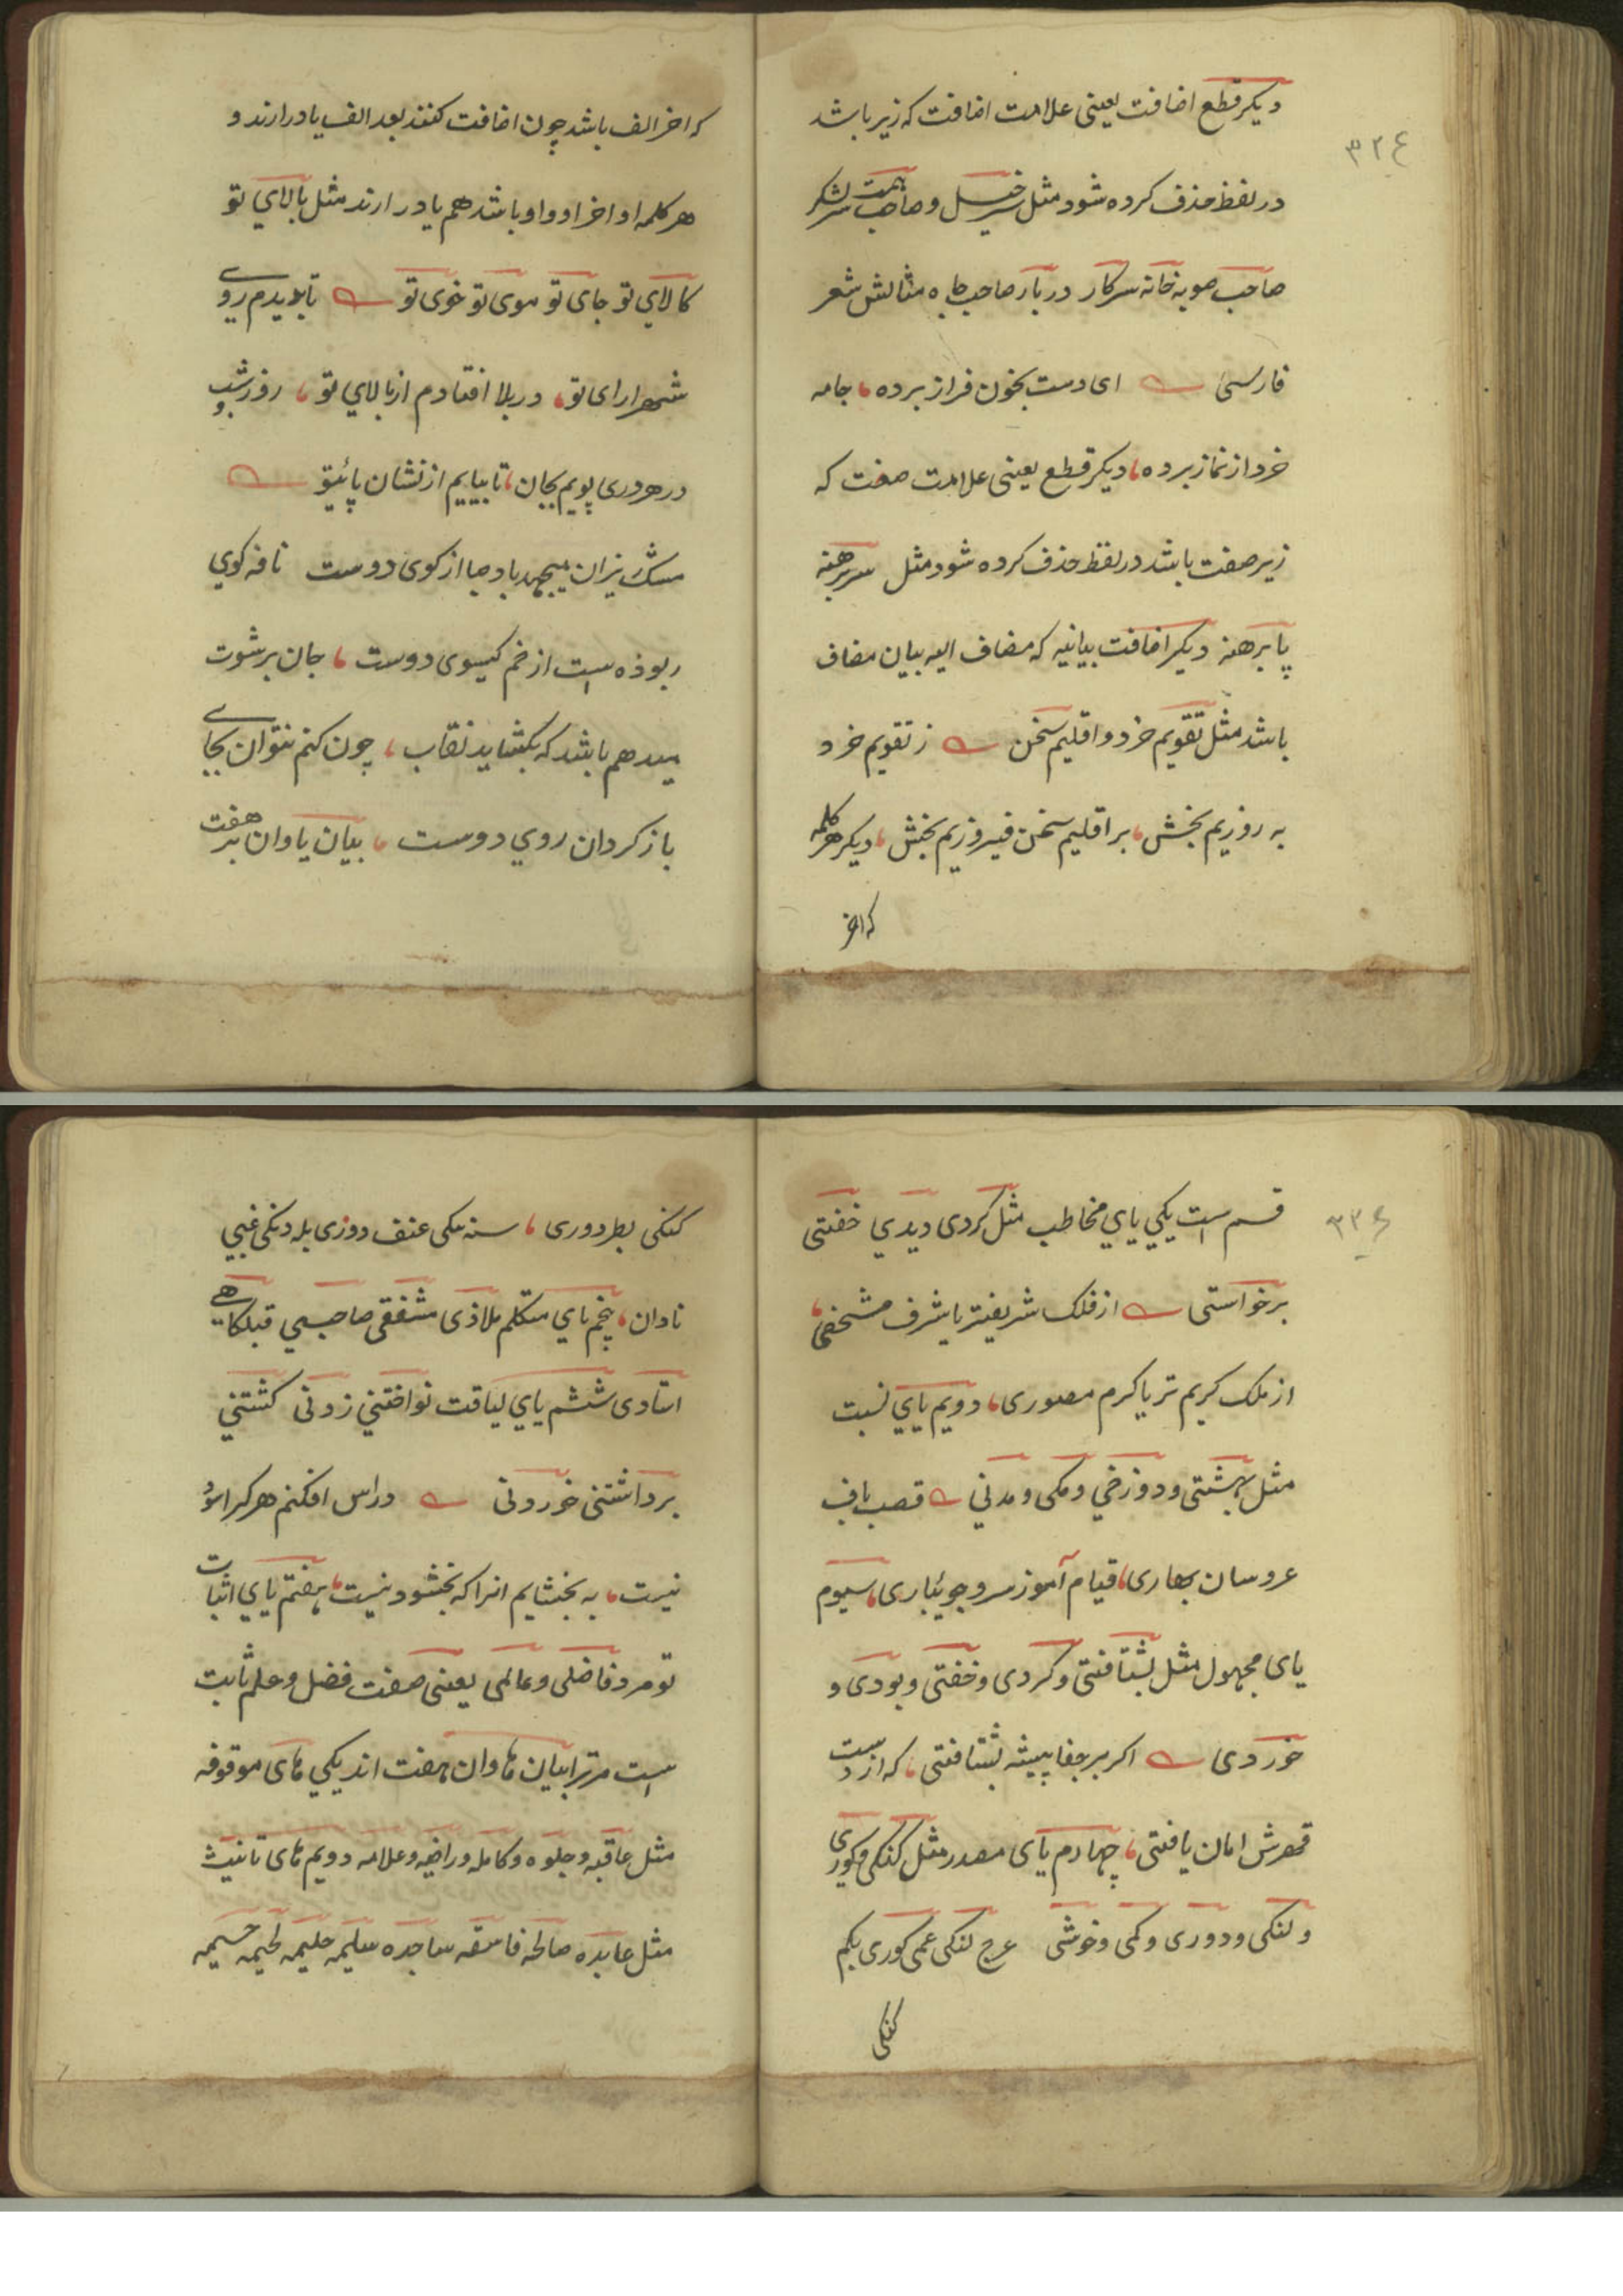 ٣٢٤
دیکر قطع اضافت یعنی علامت اضافت که زیر باشد
در لفظ حذف کرده شود مثل سرخیل و صاحب همت سر لشکر
صاحب صوبه خانه سرکار دربار صاحب جاه مثالش شعر
فارسی ای دست بخون فراز برده جامه
خرد از نماز برده دیکر قطع یعنی علامت صفت که
زیر صفت باشد در لفظ حذف کرده شود مثل سر برهنه
پا برهنه دیکر اضافت بیانیه که مضاف الیه بیان مضاف
باشد مثل تقویم خرد و اقلیم سخن ز تقویم خرد
به روزیم بخش بر اقلیم سخن فیروزیم بخش دیکر هر کلمه
که اخر
که اخر الف باشد چون اضافت کنند بعد الف یا در ارند و
هر کلمه او اخر او واو باشد هم یا در ارند مثل بالای تو
کالای تو جای تو موی تو خوی تو تا بدیدم روی
شهر ارای تو در بلا افتادم از بالای تو روز و شب
در هر دری پویم بجان تا بیابم از نشان پائیتو
مشک ریزان میجهد باد صبا از کوی دوست نافه کوی
ربوذه است از خم کیسوی دوست جان بر شوت
میدهم باشد که بکشاید نقاب چون کنم نتوان بجای
باز کردان روی دوست بیان یا وان بر هفت
٣٣٤
قسم است یکی یای مخاطب مثل کردی دیدی خفتی
برخواستی از فلک شریفتر یا شرف مشخصی
از ملک کریم تر یا کرم مصوری دویم یای نسبت
مثل بهشتی و دوزخی و مکی و مدنی قصب باف
عروسان بهاری قیام آموز سرو جویئباری سیوم
یای مجهول مثل بشتافتی و کردی و خفتی و بودی و
خوردی اکر بر جفا پیشه بشتافتی که از دست
قهرش امان یافتی چهارم یای مصدر مثل کنکی و کوری
و لنکی و دوری و کمی و خوشی عرج لنکی عمی کوری بکم
کنکی
کنکی بطر دوری سنه سکی عنف دوزی بله دنکی غبی
نادان پنجم یای متکلم ملاذی مشفقی صاحبی قبلکاهی
استادی ششم یای لیاقت نواختنی زدنی کشتنی
برداشتنی خوردنی در اس افکنم هر که را سود
نیست به بخشایم انرا که بخشود نیست هفتم یای اثبات
تو مرد فاضلی و عالمی یعنی صفت فضل و علم ثابت
است مر ترا بیان ها وان هفت اند یکی های موقوفه
مثل عاقبه و جلوه و کامله و راضیه و علامه دویم های تانیث
مثل عابده صالحه فاسقه ساجده سلیمه حلیمه لحیمه جسیمه